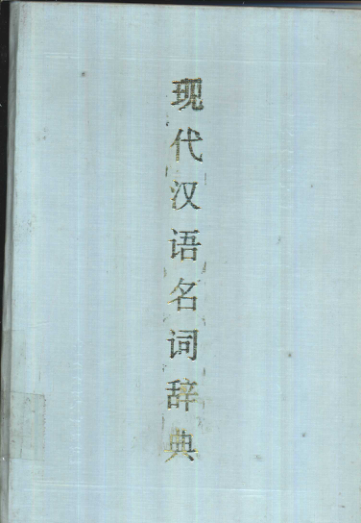 现代汉语名词辞典